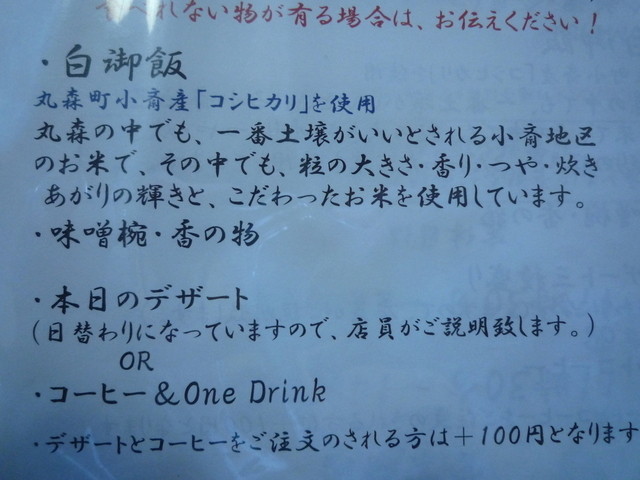 べれない物が有る場合は、お伝えください！
・白御飯
丸森町小斎産「コシヒカリ」を使用
丸森の中でも、一番土壌がいいとされる小斎地区
のお米で、その中でも、粒の大きさ・香り・つや・炊き
あがりの輝きと、こだわったお米を使用しています。
・味噌椀・香の物
・本日のデザート
（日替わりになっていますので、店員がご説明致します。）
OR
・コーヒー＆One Drink
・デザートとコーヒーをご注文のされる方は＋100円となります